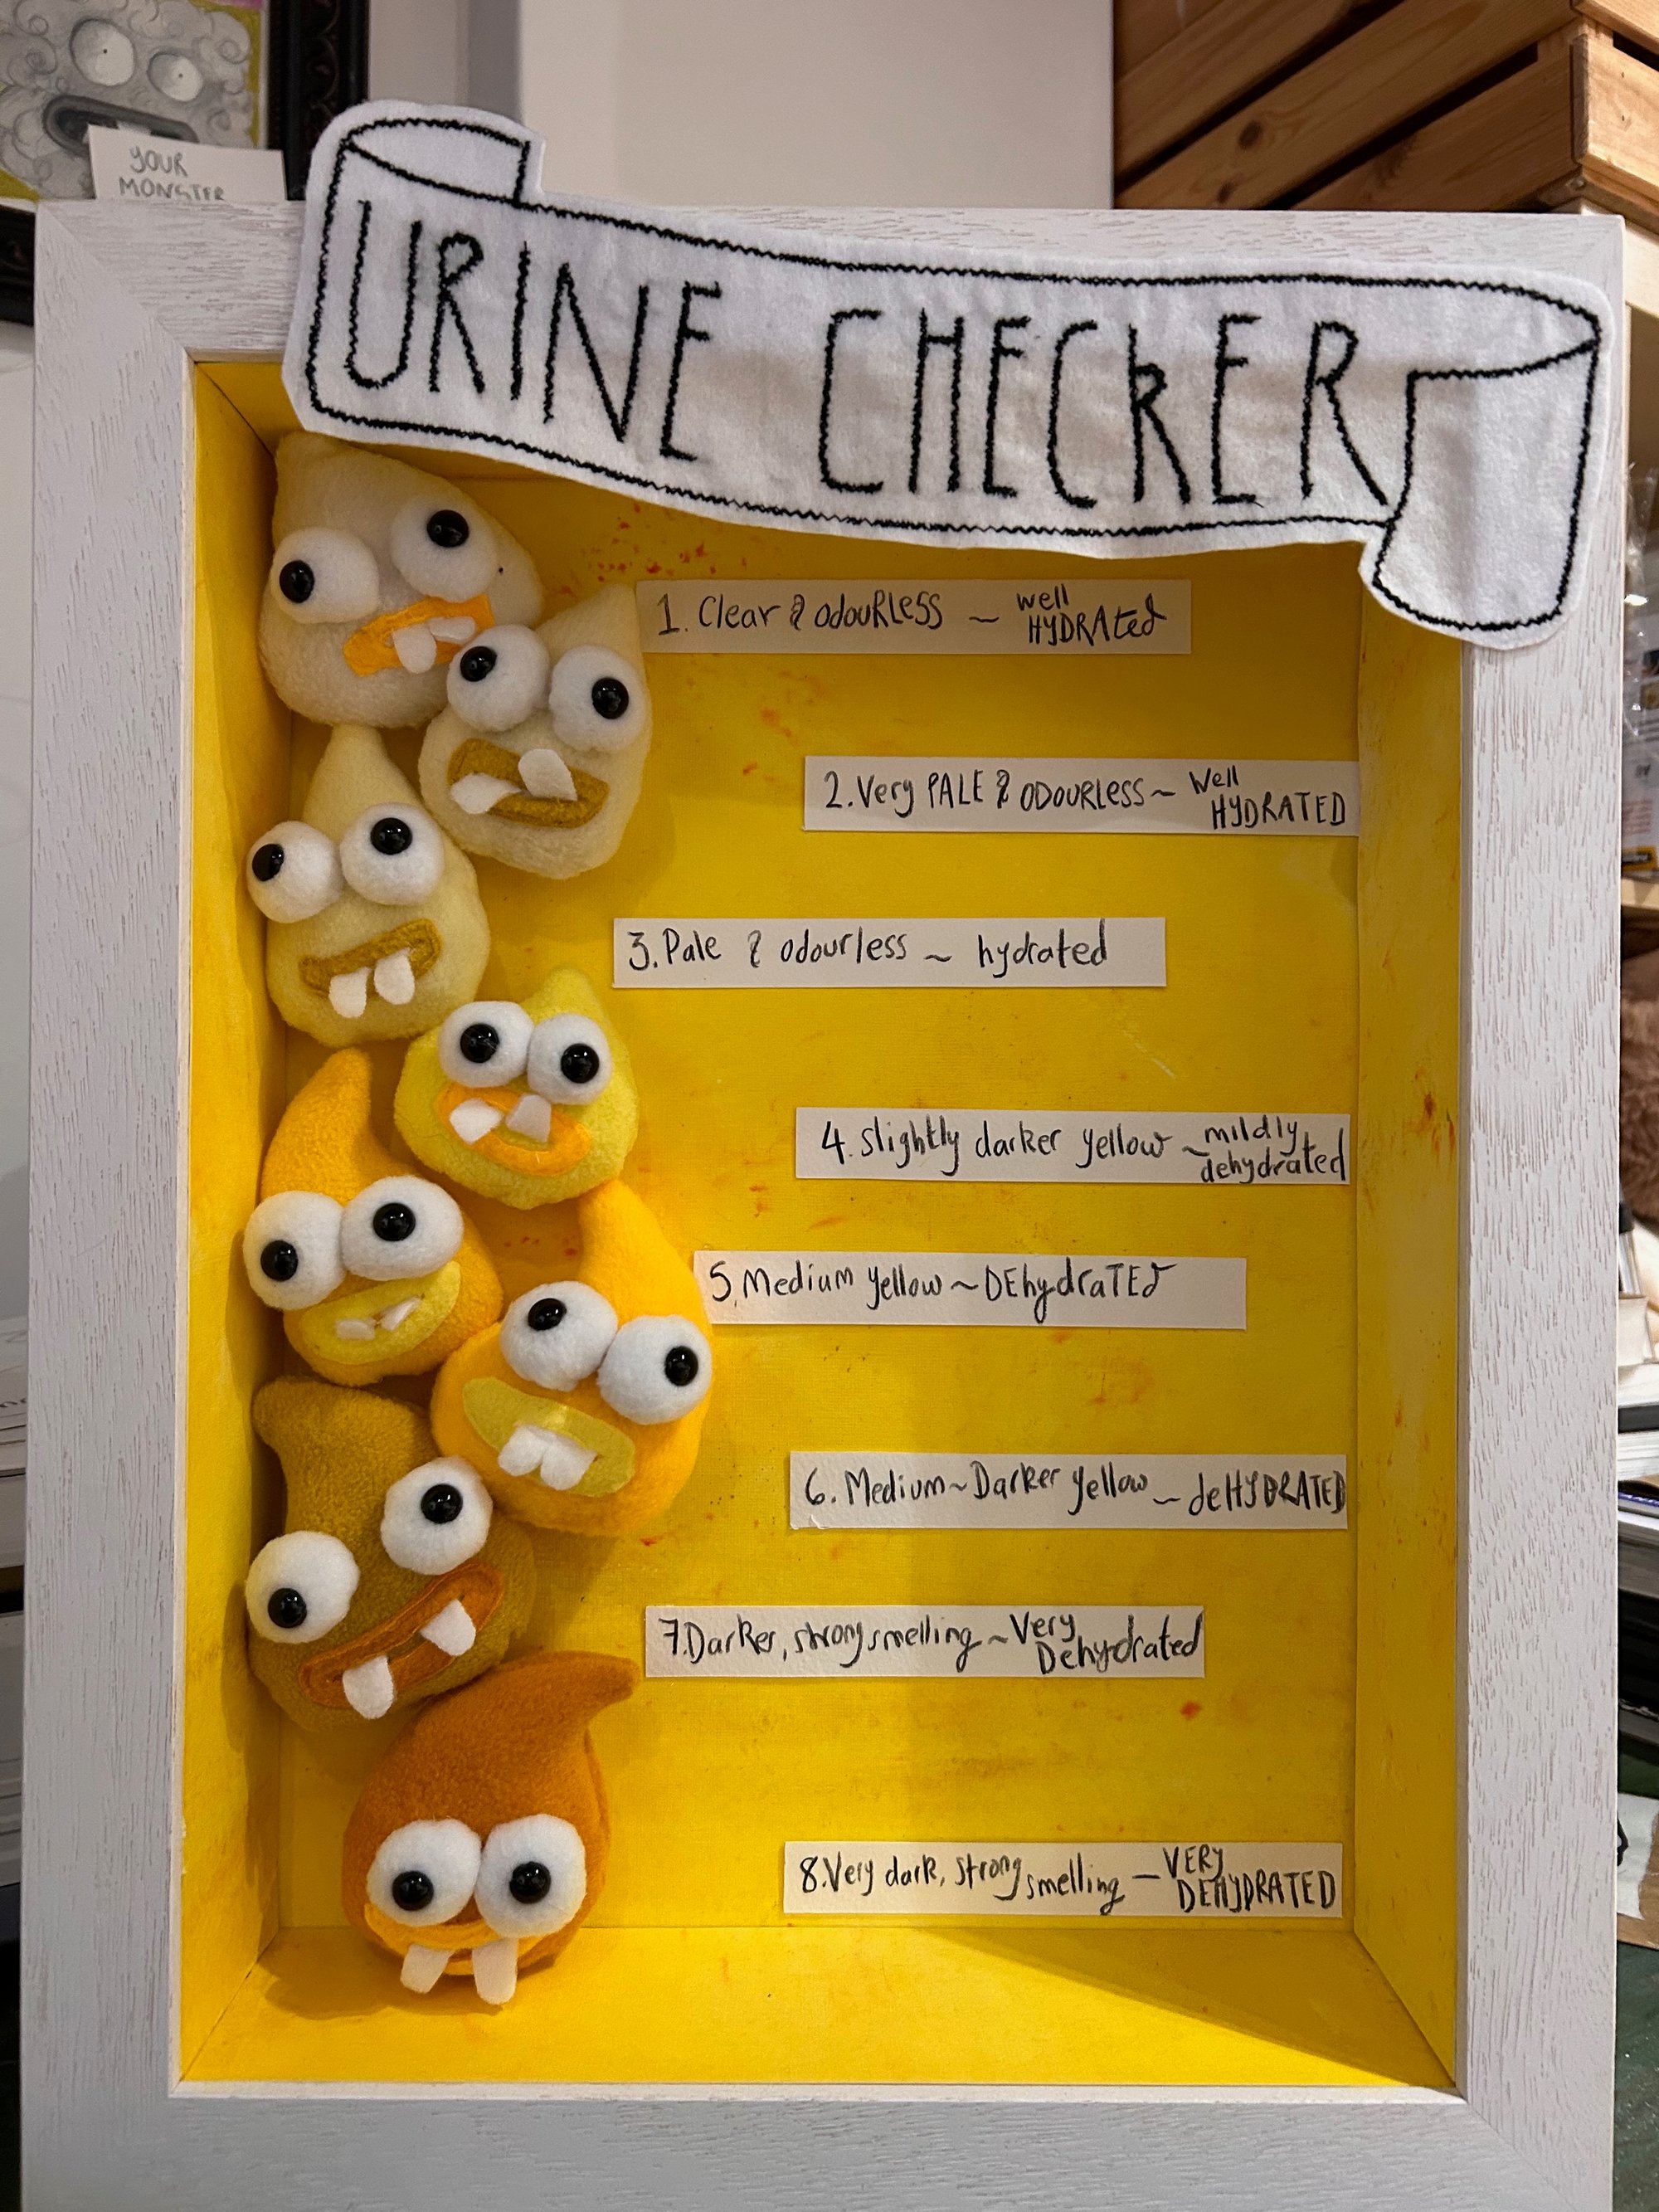 YOUR
MONSTER
URINE CHECKER
1. Clear & odouRLess ~ well
HYDRAted
2. Very PALE & ODOURLess ~ Well
HYDRATED
3. Pale & odourless ~ hydrated
4. slightly darker yellow ~ mildly
dehydrated
5. Medium yellow ~ DEhydraTEd
6. Medium ~ Darker yellow ~ deHYDRATED
7. Darker, strong smelling ~ Very
Dehydrated
8. Very dark, strong smelling — VERY
DEHYDRATED